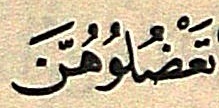 تَعْضُلُوْهُنَّ